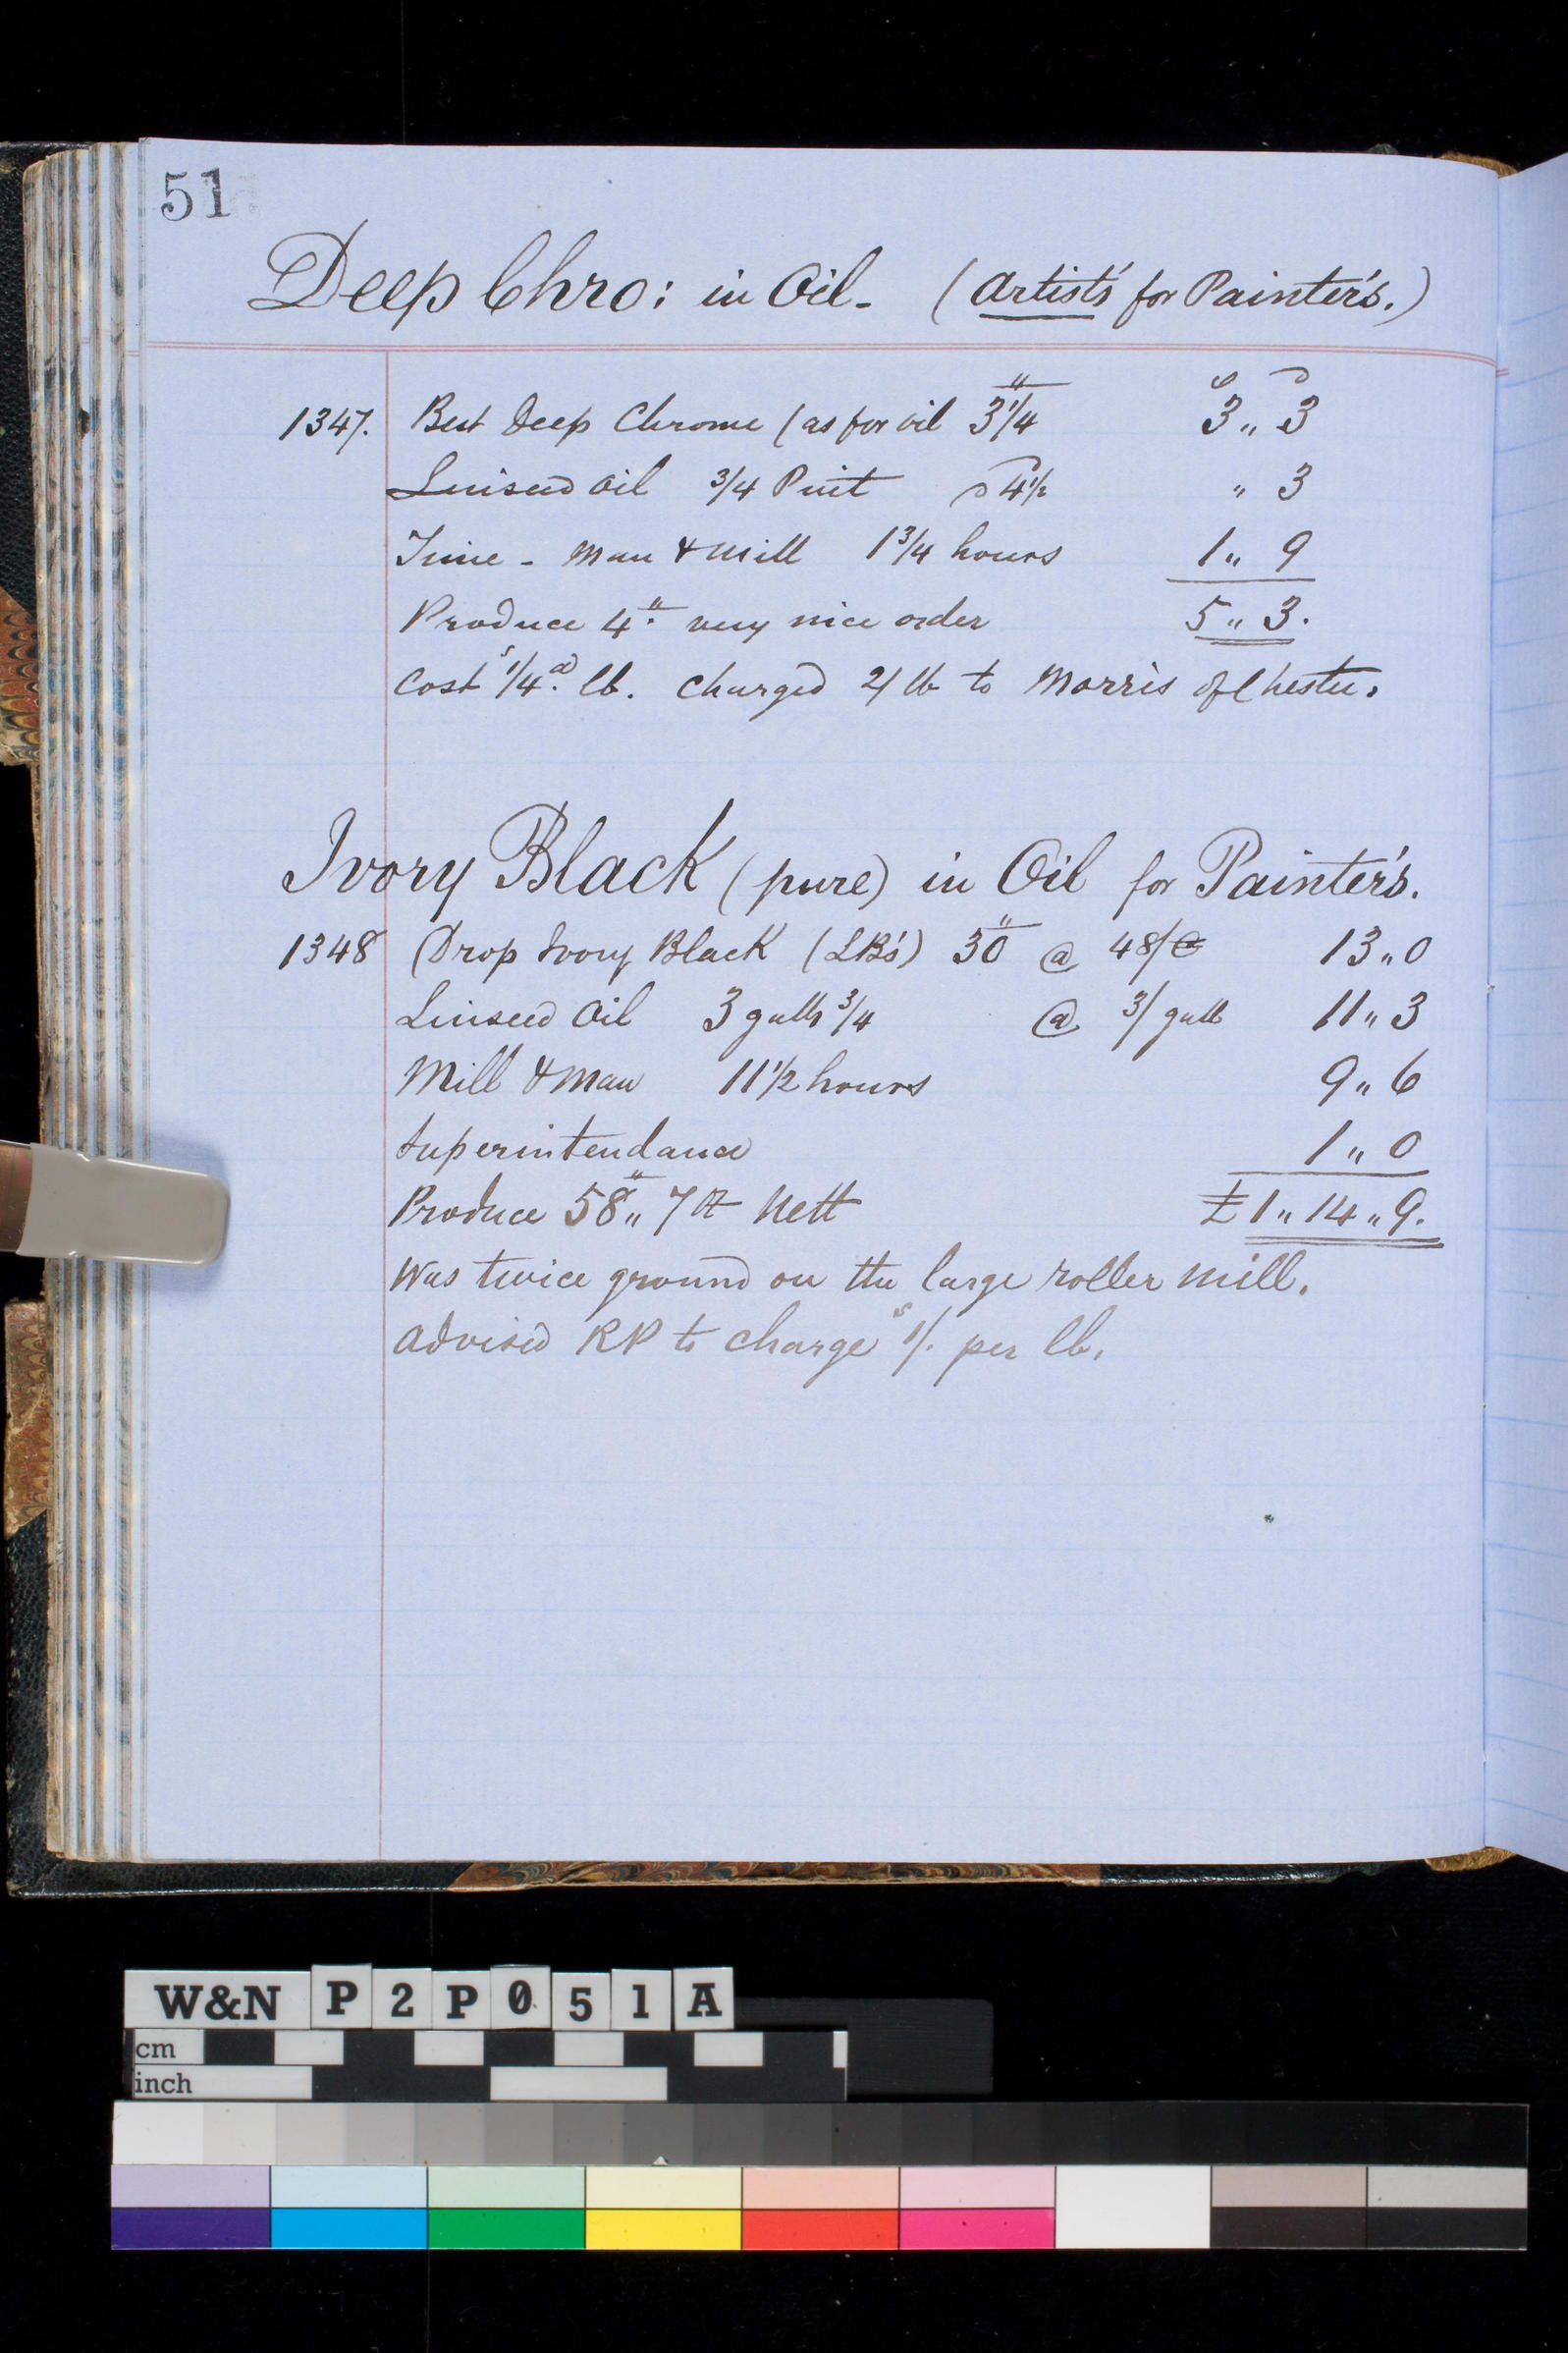 51
Deep Chro: in Oil- (Artist's for Painter's.)
s d
1347. Best Deep Chrome (as for oil 3 1/4 3 " 3
Linseed Oil 3/4 Pint 4 1/2 " 3
Time - Man & Mill 1 3/4 hours 1 " 9
Produce 4 " very nice order 5 " 3.
Cost s 1/4 d. lb. Charged 2/ lb to Morris of Chester.
Ivory Black (pure) in Oil for Painter's.
1348 (Drop Ivory Black (LB's) 30 " @ 48/ C 13 " 0
Linseed Oil 3 galls 3/4 @ 3/ gall 11 " 3
Mill & Man 11 1/2 hours 9 " 6
Superintendance 1 " 0
Produce 58 " 7 Nett £1 " 14 " 9.
Was twice ground on the large roller mill.
Advised RP to charge s 1/. per lb.
W&N P2P051A
cm
inch